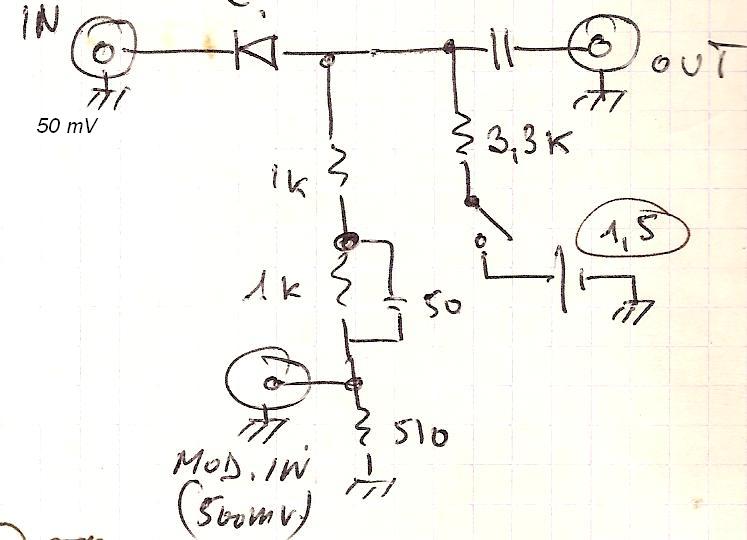 IN
50 mV
OUT
3,3K
1K
1,5
1K
50
510
MOD. IN
(500mV)